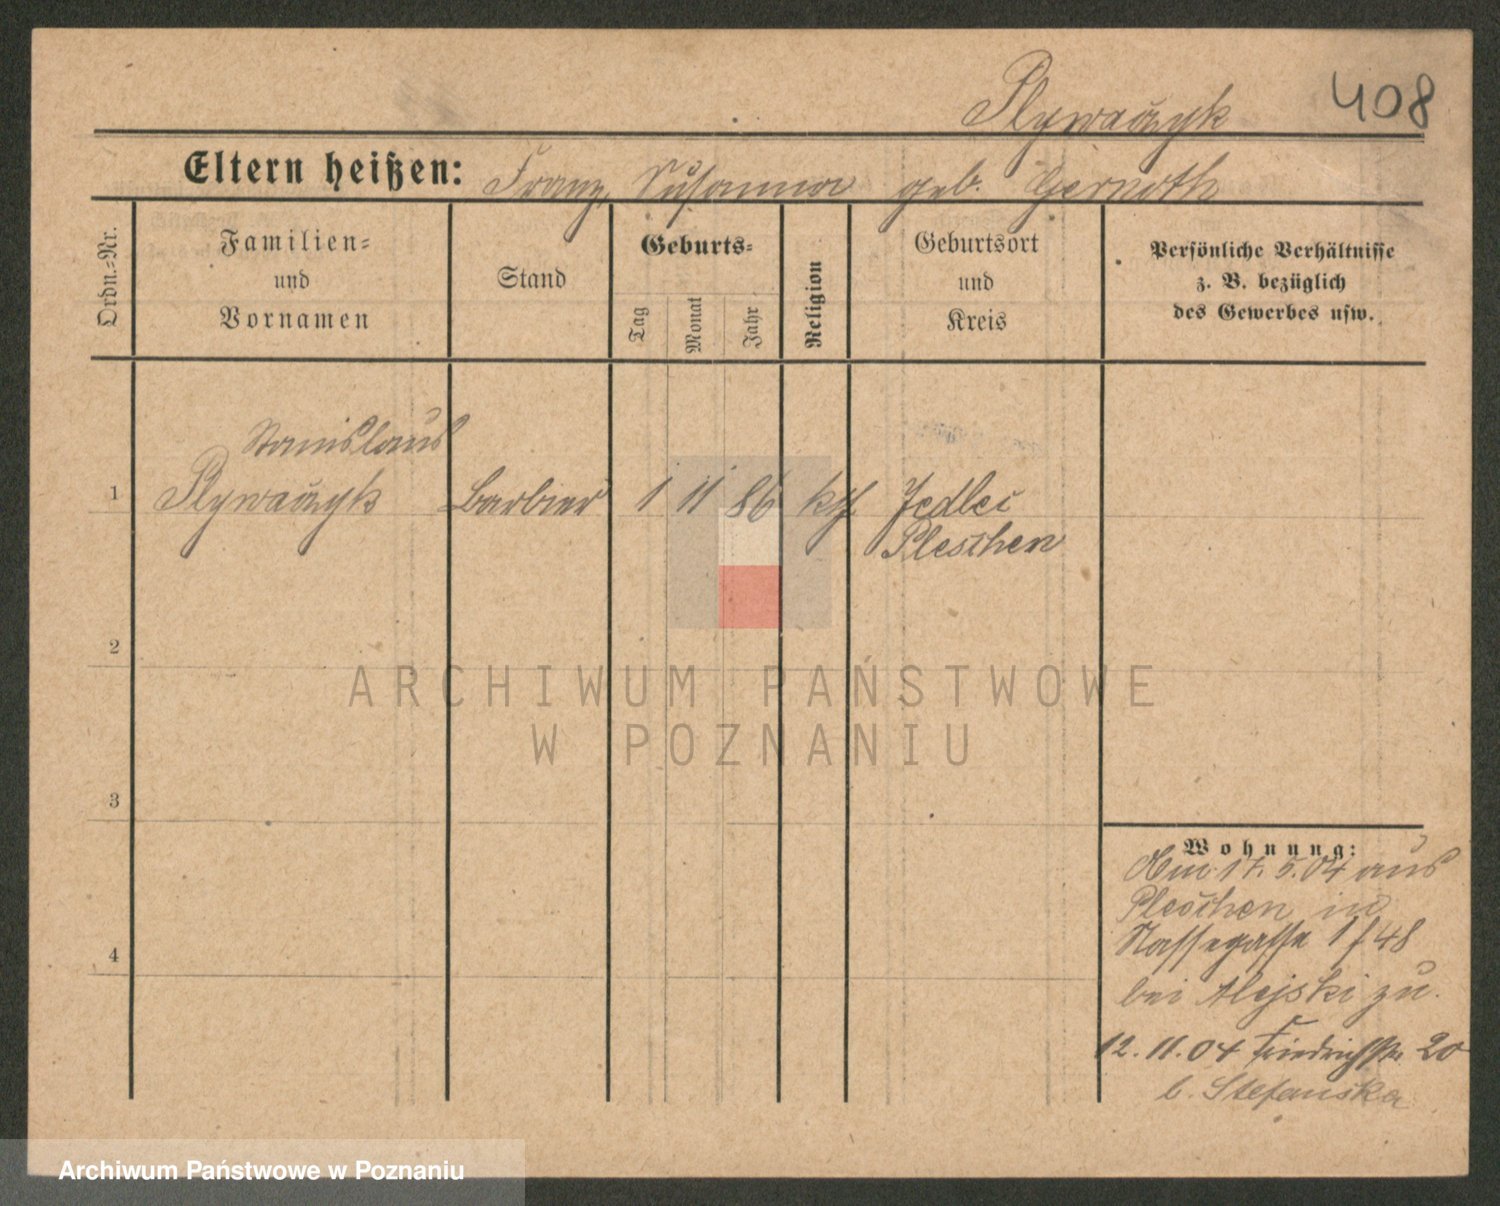 408
Plywaczyk
Eltern heißen: Franz, Susanna geb. Gernoth
Ordn.-Nr.
Familien-
und
Vornamen
Stand
Geburts-
Tag
Monat
Jahr
Religion
Geburtsort
und
Kreis
Persönliche Verhältnisse
z. B. bezüglich
des Gewerbes usw.
Stanislaus
1 Plywaczyk Barbier 1 11 86 kth Jedlec
Pleschen
2
3
4
ARCHIWUM PAŃSTWOWE
W POZNANIU
Wohnung:
Am 17.5.04 aus
Pleschen in
Nassegasse 48
bei Alejski zu.
12.11.04 Friedrichstr 20
b. Stefanska
Archiwum Państwowe w Poznaniu